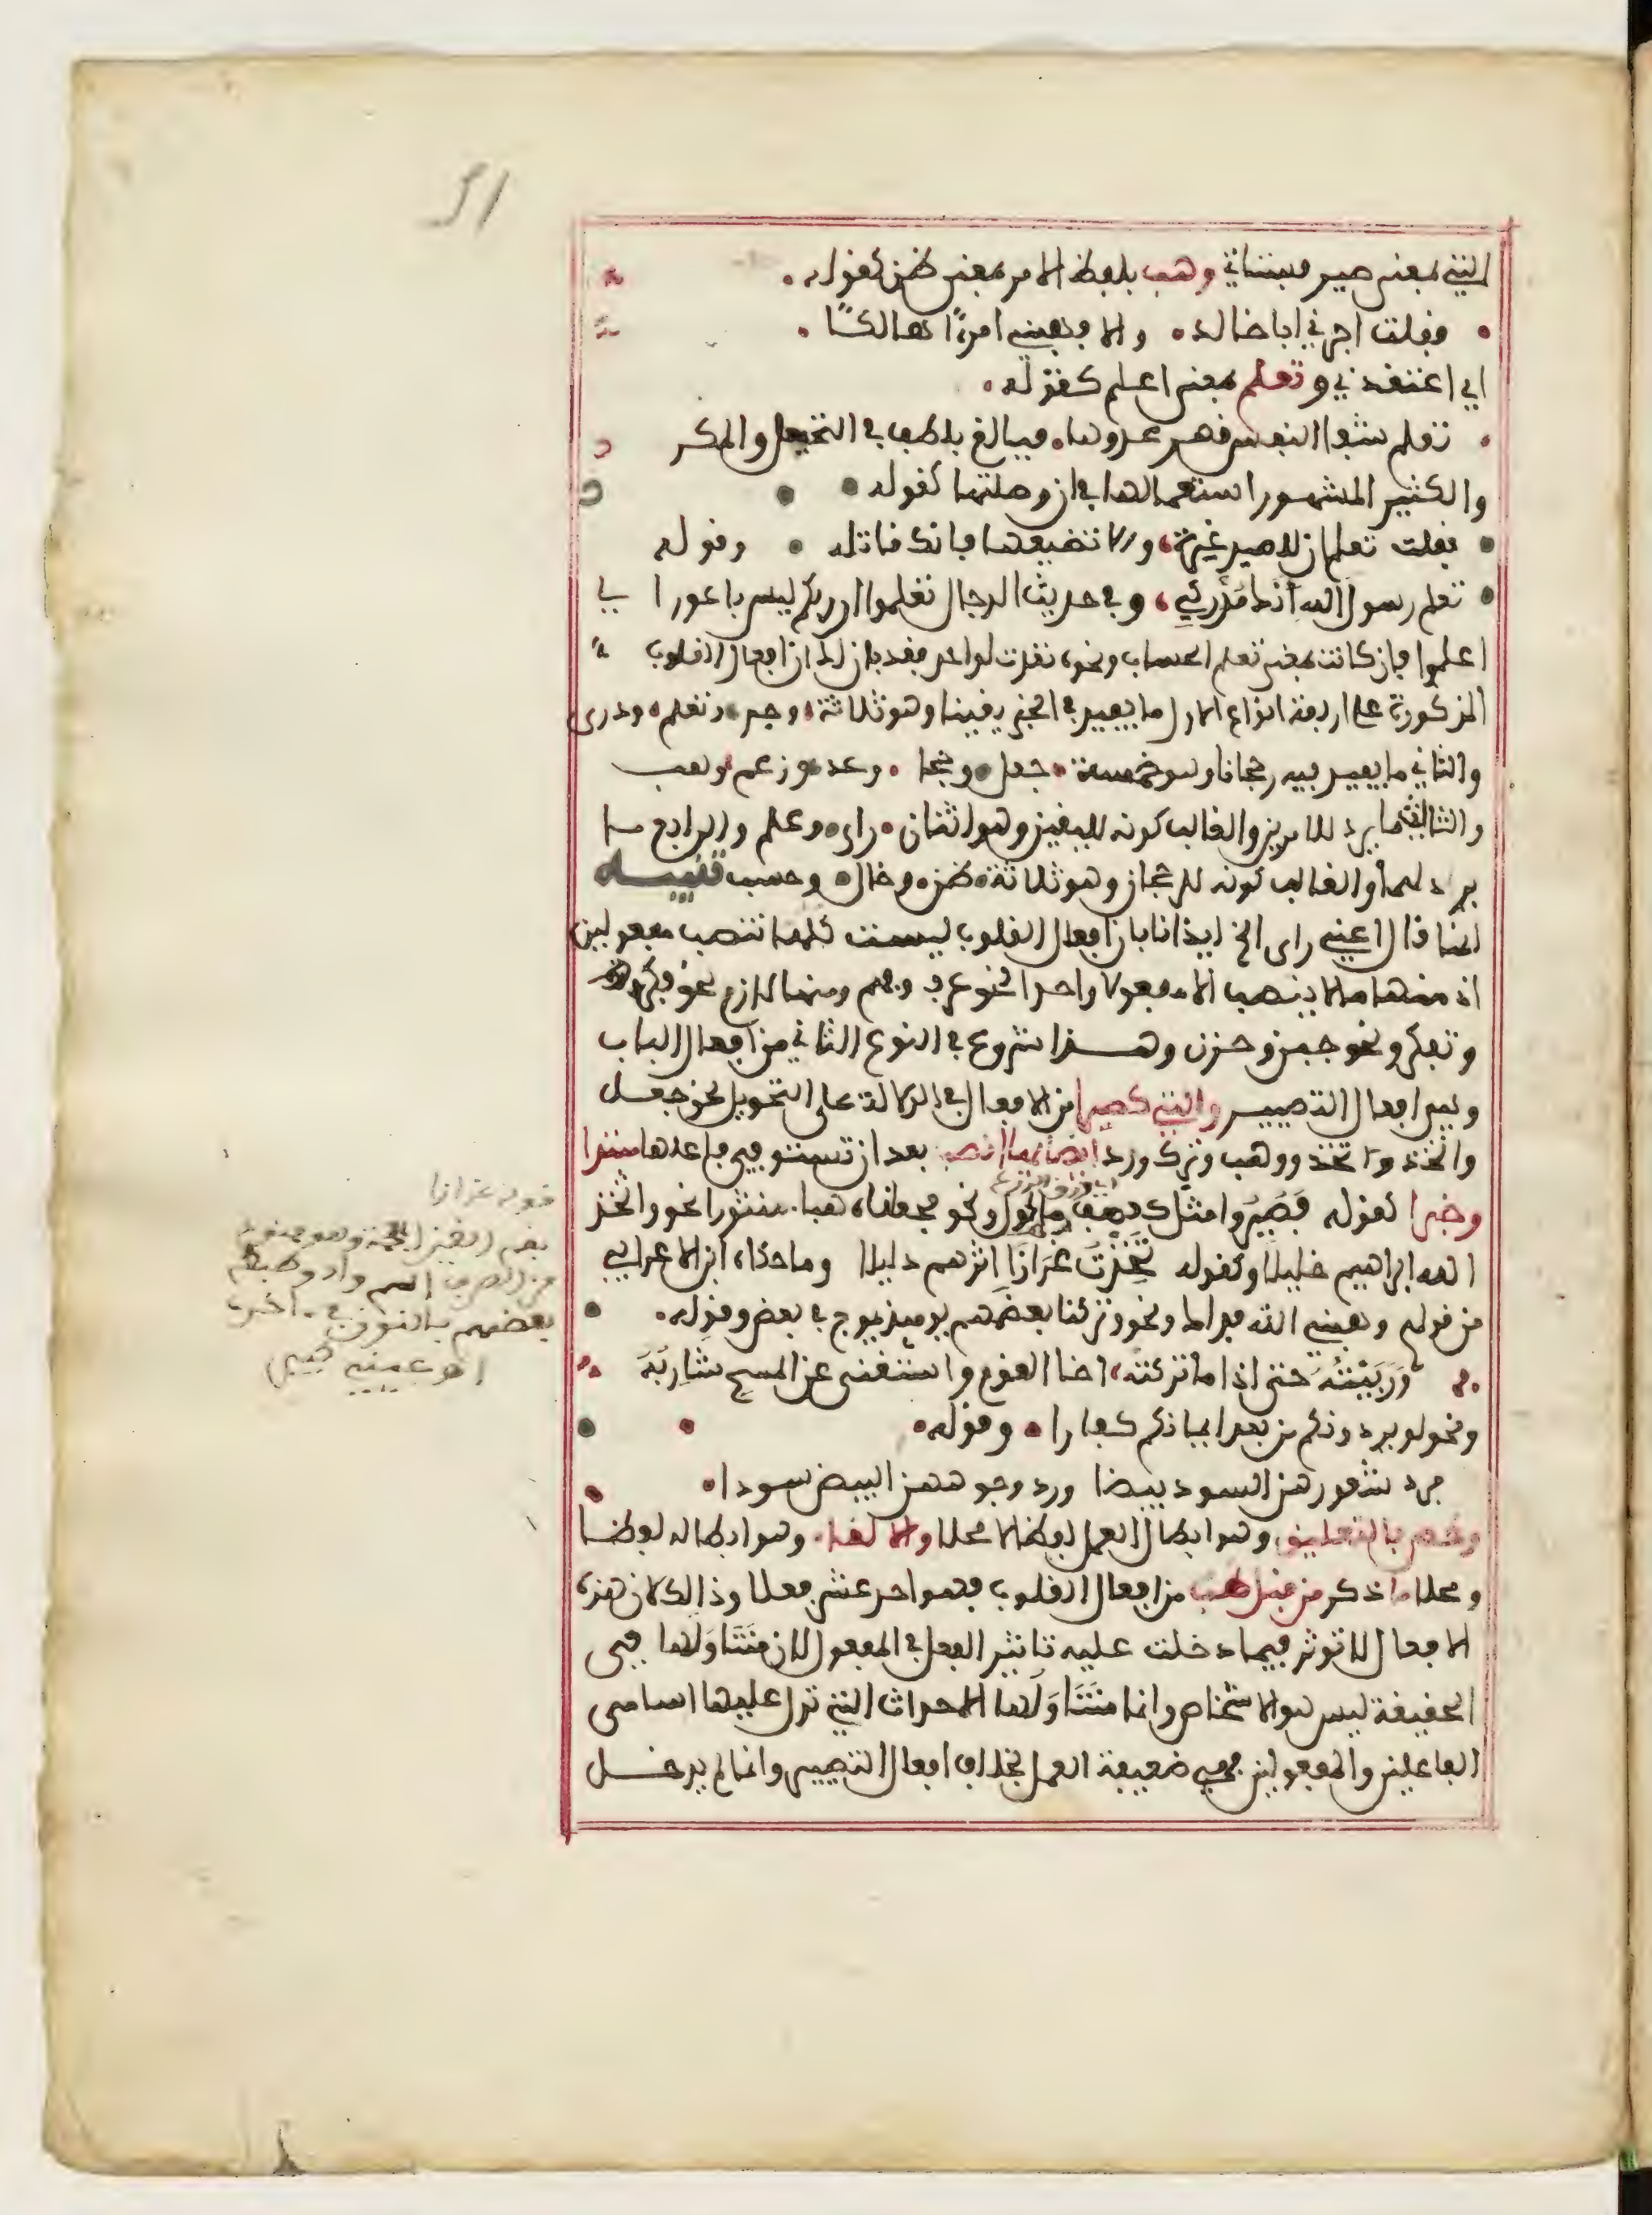 التي بمعنى صير فستاتي وهب بلفظ الامر بمعنى ظن كقوله
فقلت اجرني ابا خالد والا فهبني امرءا هالكا
اي اعتقدني وتعلم بمعنى اعلم كقوله
تعلم شفا النفس قهر عدوها فبالغ بلطف في التحيل والمكر
والكثير المشهور استعمالها في ان وصلتها كقوله
فقلت تعلم ان للصيد غرة والا تضيعها فانك قاتله وقوله
تعلم رسول الله انك مدركي وفي حديث الدجال تعلموا ان ربكم ليس باعور اي
اعلموا فان كانت بمعنى تعلم الحساب ونحوه تعدت لواحد فقد بان لك ان افعال القلوب
المذكورة على اربعة انواع الاول ما يفيد في الخبر يقينا وهو ثلاثة وجد وتعلم ودرى
والثاني ما يفيد فيه رجحانا وهو خمسة جعل وحجا وعد وزعم وهب
والثالث ما يرد للامرين والغالب كونه لليقين وهو اثنان راى وعلم والرابع ما
يرد لهما والغالب كونه للرجحان وهو ثلاثة ظن وخال وحسب تنبيه
انما قال اعني راى الخ ايذانا بان افعال القلوب ليست كلها تنصب مفعولين
اذ منها ما لا ينصب الا مفعولا واحدا نحو عرف وفهم ومنها لازم نحو فكر
وتفكر ونحو جبن وحزن وهذا شروع في النوع الثاني من افعال الباب
وهي افعال التصيير والتي كصيرا من الافعال في الدلالة على التحويل نحو جعل
واتخذ وتخذ ووهب وترك ورد ايضا بها انصب بعد ان تستوفي فاعلها مبتدا
وخبرا كقوله فصيروا مثل كعصف ماكول ونحو فجعلناه هباء منثورا نحو واتخذ
الله ابراهيم خليلا وكقوله تخذت غرازا اثرهم دليلا وما حكاه ابن الاعرابي
من قولهم وهبني الله فداك ونحو وتركنا بعضهم يومئذ يموج في بعض وقوله
وربيته حتى اذا ما تركته اخا القوم واستغنى عن المسح شاربه
ونحو لو يردونكم من بعد ايمانكم كفارا وقوله
فرد شعورهن السود بيضا ورد وجوههن البيض سودا
وخص بالتعليق وهو ابطال العمل لفظا لا محلا والالغا وهو ابطاله لفظا
ومحلا ما ذكر من قبل هب من افعال القلوب وهو احد عشر فعلا وذالك لان هذه
الافعال لا توثر فيما دخلت عليه تاثير الفعل في المفعول لان متناولها في
الحقيقة ليس هو الاشخاص وانما متناولها الاحداث التي تدل عليها اسامي
الفاعلين والمفعولين فهي ضعيفة العمل بخلاف افعال التصيير وانما لم يدخل
قوله غرازا
بضم الغين المعجمة وهو ممنوع
من الصرف اسم واد وضبطه
بعضهم بالنون في اخره